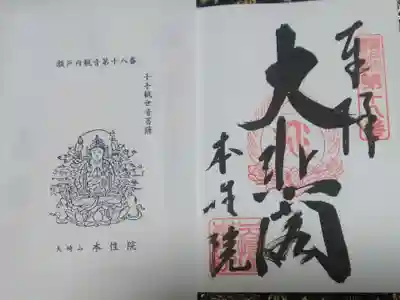 瀬戸内観音第十八番
千手観世音菩薩
大崎山 本性院
奉拝
大悲閣
本性院